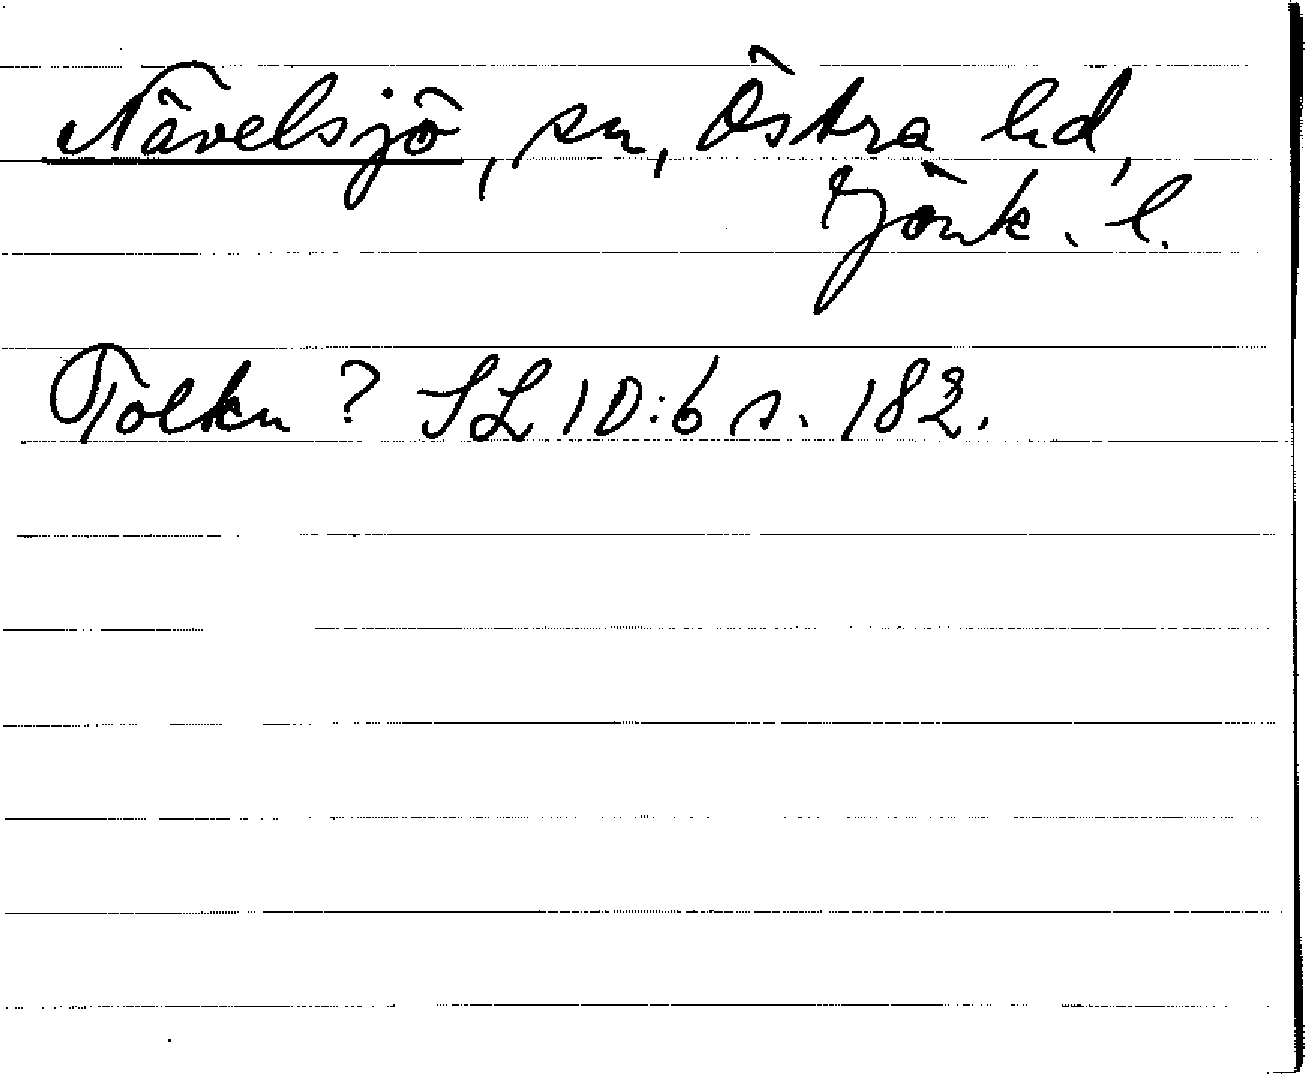 Nävelsjö, sn, Östra hd,
Jönk. l.
Tolkn ? SL 10:6 s. 182.